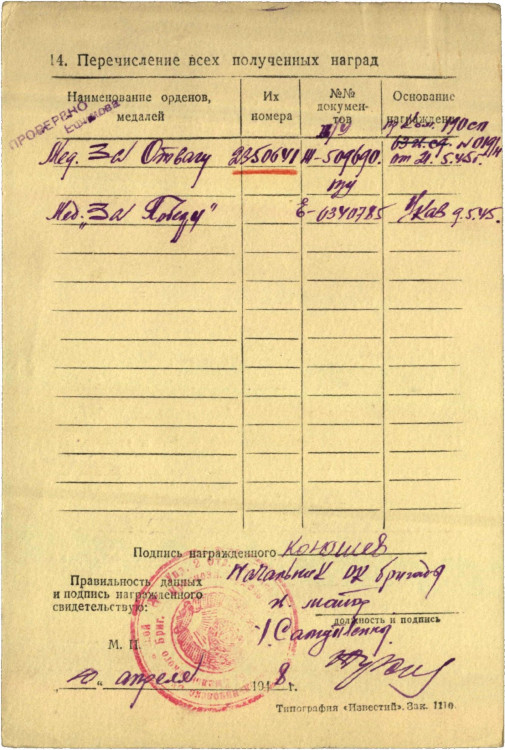 14. Перечисление всех полученных наград
Наименование орденов, медалей
Их номера
№№ документов
Основание награждения
ПРОВЕРЕНО
Мед. За Отвагу 2350641 509690
от 21.5.45г.
Мед. "За Победу" Е-0340785 Указ 9.5.45.
Подпись награжденного Конюшев
Правильность данных
и подпись награжденного
свидетельствую:
Начальник бригады
майор
должность и подпись
М. П.
10 апреля 1948 г.
Типография «Известий». Зак. 1110.